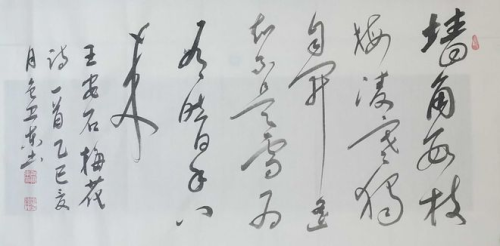 墙角数枝
梅凌寒独
自开遥
知不是雪为
有暗香
来
王安石梅花
诗一首乙巳夏
月
书